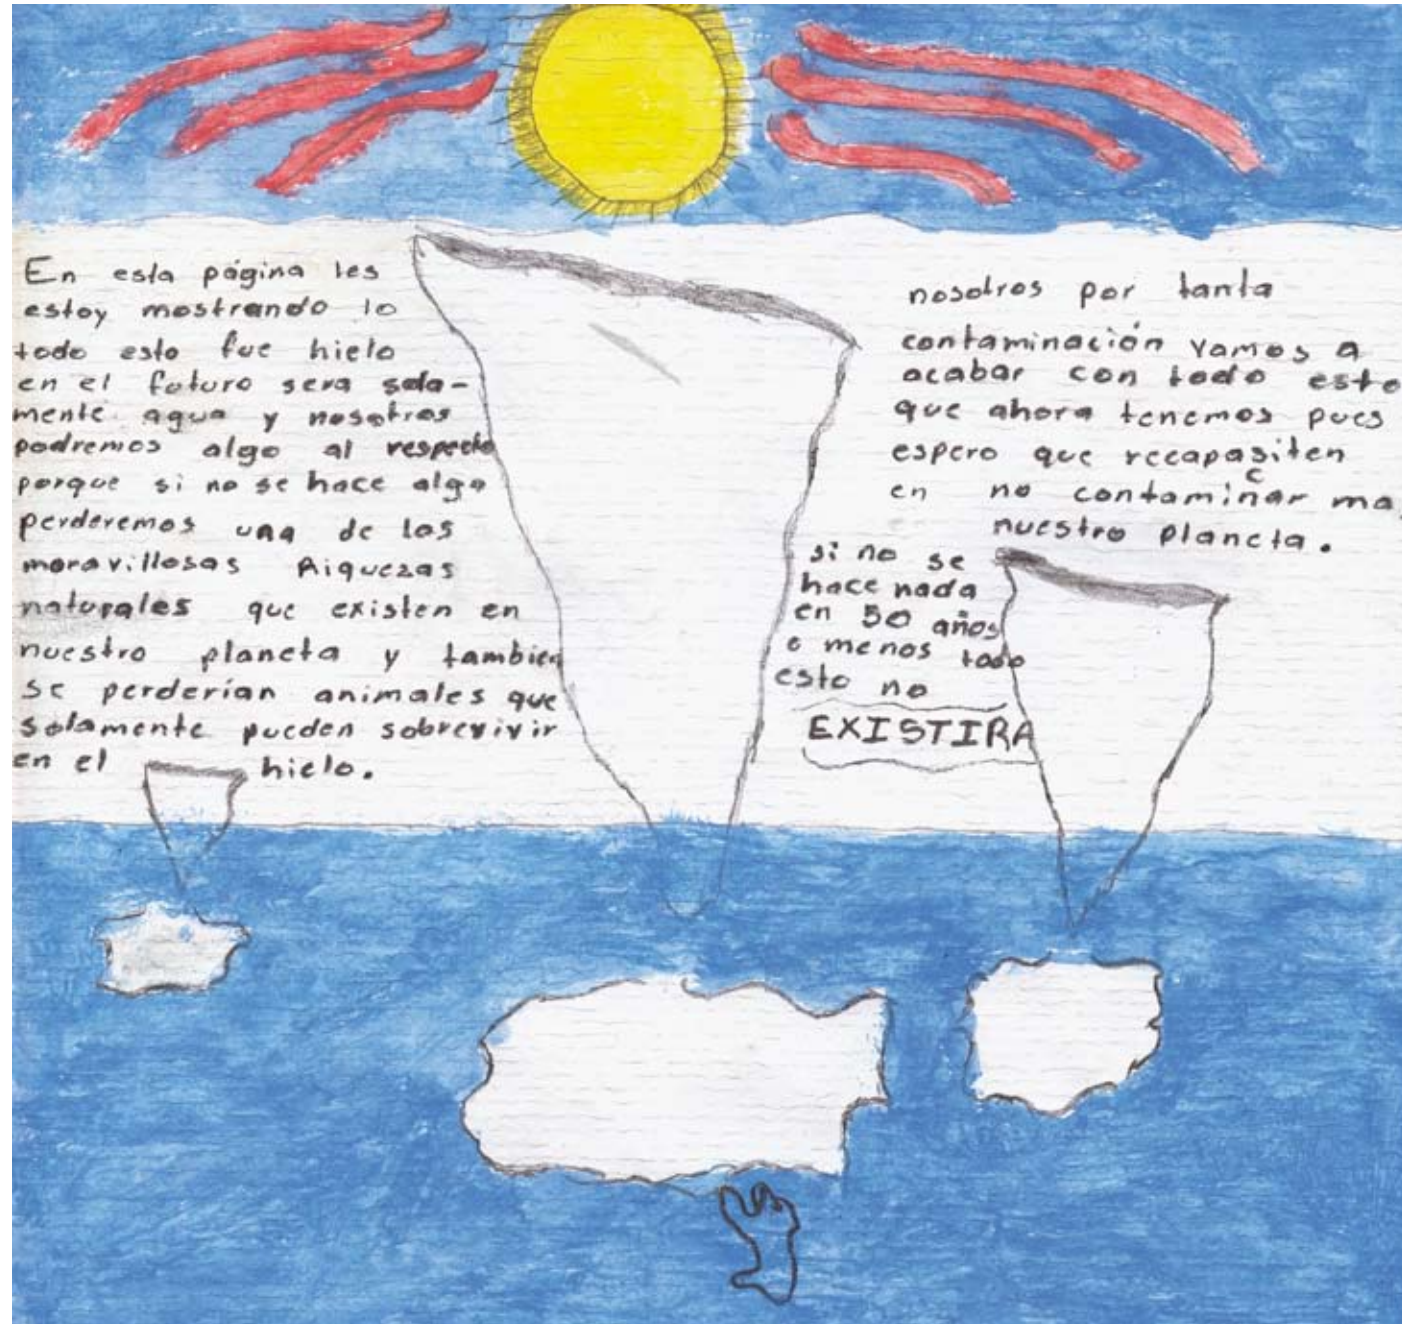 En esta página les
estoy mostrando lo
todo esto fue hielo
en el futuro sera sola-
mente agua y nosotros
podremos algo al respecto
porque si no se hace algo
perderemos una de las
maravillosas Riquezas
naturales que existen en
nuestro planeta y tambien
se perderían animales que
solamente pueden sobrevivir
en el hielo.
nosotros por tanta
contaminación vamos a
acabar con todo esto
que ahora tenemos pues
espero que recapasiten
c
en no contaminar mas
nuestro planeta.
si no se
hace nada
en 50 años
o menos todo
esto no
EXISTIRA